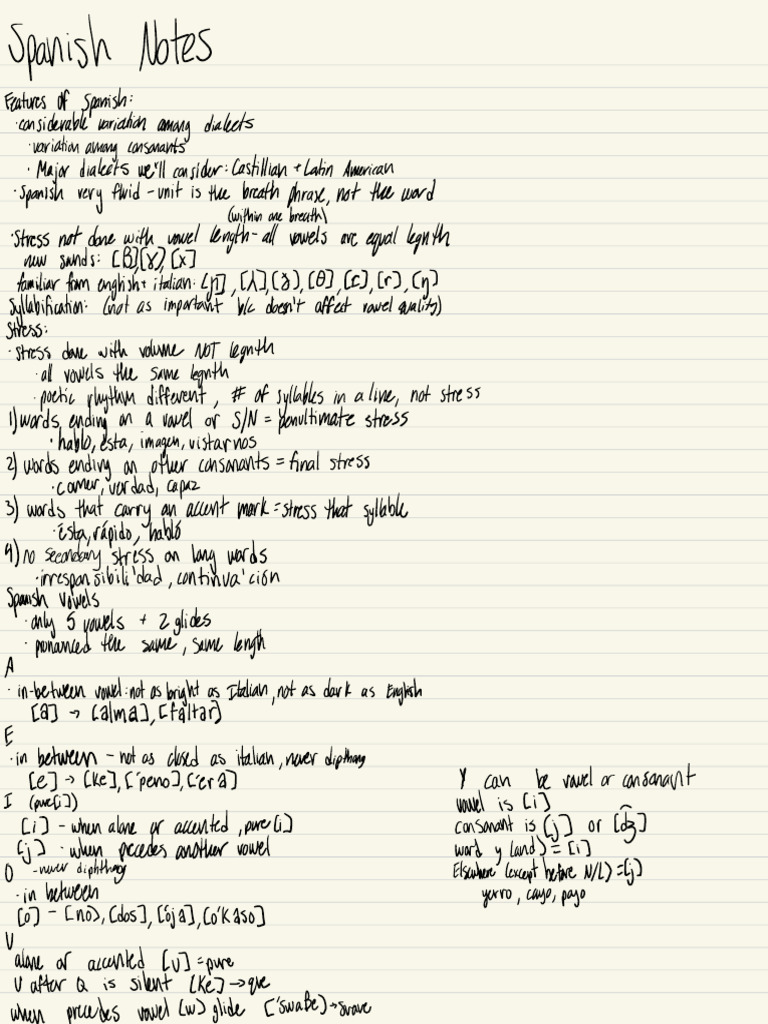 Spanish Notes
Features of Spanish:
·considerable variation among dialects
·variation among consonants
· Major dialects we'll consider: Castillian + Latin American
·Spanish very fluid - unit is the breath phrase, not the word
(within one breath)
·Stress not done with vowel length - all vowels are equal legnth
new sounds: [β][ɣ],[x]
familiar from english + italian: [ɲ],[ʎ],[ʝ],[θ],[ɾ],[r],[ŋ]
Syllabification: (not as important b/c doesn't affect vowel quality)
Stress:
·stress done with volume NOT legnth
·all vowels the same legnth
·poetic rhythm different, # of syllables in a line, not stress
1) words ending on a vowel or S/N = penultimate stress
·hablo, esta, imagen, vistarnos
2) words ending on other consonants = final stress
·comer, verdad, capaz
3) words that carry an accent mark = stress that syllable
·ésta, rápido, habló
4) no secondary stress on long words
·irresponsibili'dad, continva'ción
Spanish Vowels
·only 5 vowels + 2 glides
·pronanced the same, same length
A
·in-between vowel: not as bright as Italian, not as dark as English
[a] → [alma], [faltar]
E
·in between - not as closed as italian, never dipthong
[e] → [ke], ['peno], ['era]
I (pure[i])
[i] - when alone or accented, pure [i]
[j] · when pecedes another vowel
O -never diphthong
·in between
[o] - [no], [dos], [oja], [o'kaso]
U
alone or accented [u] = pure
U after Q is silent [ke] → que
when precedes vowel (w) glide ['swaβe] → suave
Y can be vowel or consonant
vowel is [i]
consonant is [j] or [d͡ʒ]
word y (and) = [i]
Elsewhere (except before N/L) = [j]
yerro, cayo, payo